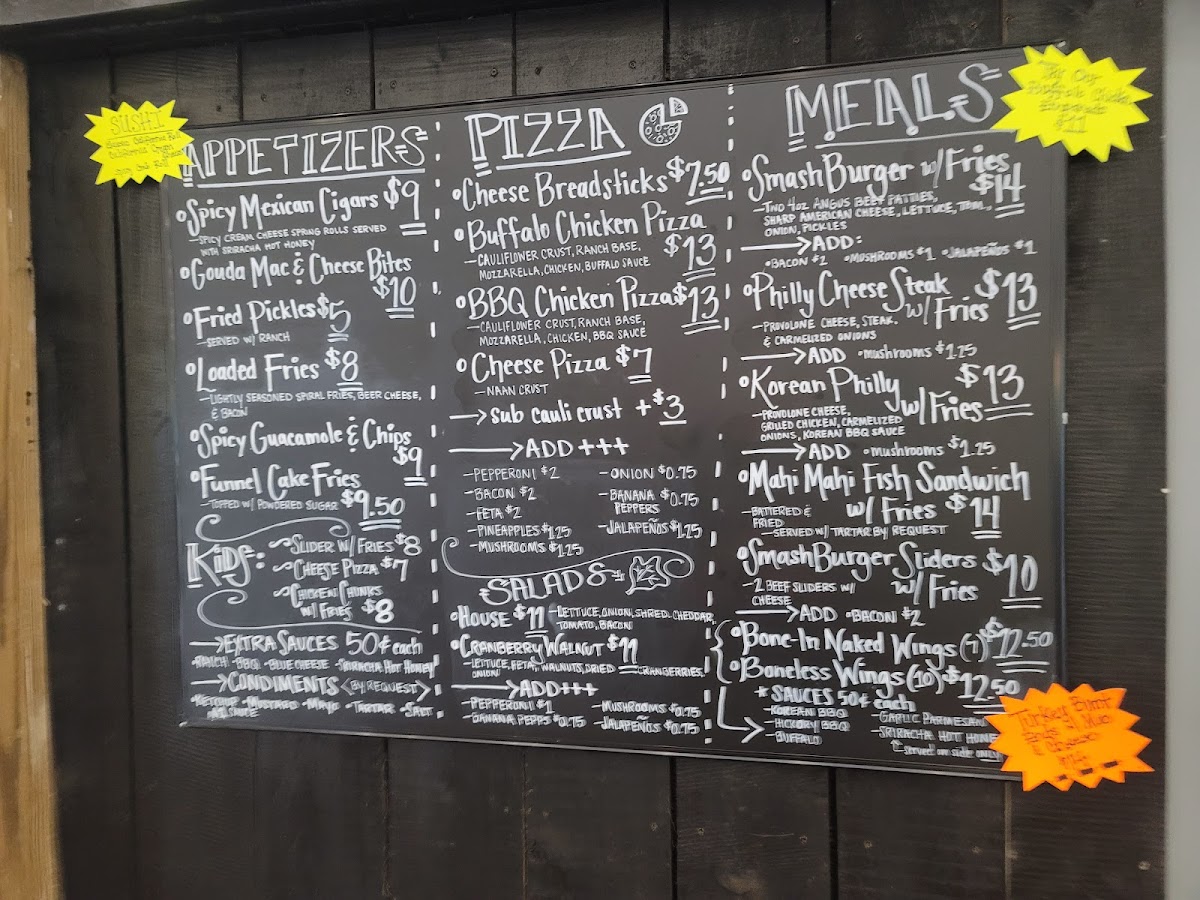 SUSHI
APPETIZERS
Spicy Mexican Cigars $9
-SPICY CREAM CHEESE SPRING ROLLS SERVED
WITH SRIRACHA HOT HONEY
Gouda Mac & Cheese Bites
$10
Fried Pickles $5
-SERVED W/ RANCH
Loaded Fries $8
-LIGHTLY SEASONED SPIRAL FRIES, BEER CHEESE,
& BACON
Spicy Guacamole & Chips
$9
Funnel Cake Fries
-TOPPED W/ POWDERED SUGAR $9.50
KIDS:
~SLIDER W/ FRIES $8
~CHEESE PIZZA $7
~CHICKEN CHUNKS
W/ FRIES $8
→EXTRA SAUCES 50¢ each
•RANCH •BBQ •BLUE CHEESE •SRIRACHA HOT HONEY
→CONDIMENTS <BY REQUEST>
•KETCHUP •MUSTARD •MAYO •TARTAR •SALT
PIZZA
Cheese Breadsticks $7.50
Buffalo Chicken Pizza
-CAULIFLOWER CRUST, RANCH BASE, $13
MOZZARELLA, CHICKEN, BUFFALO SAUCE
BBQ Chicken Pizza $13
-CAULIFLOWER CRUST, RANCH BASE,
MOZZARELLA, CHICKEN, BBQ SAUCE
Cheese Pizza $7
-NAAN CRUST
→sub cauli crust +$3
→ADD +++
-PEPPERONI $2
-BACON $2
-FETA $2
-PINEAPPLES $1.25
-MUSHROOMS $1.25
-ONION $0.75
-BANANA $0.75
PEPPERS
-JALAPEÑOS $1.25
SALADS
HOUSE $11 -LETTUCE, ONION, SHRED. CHEDDAR,
TOMATO, BACON
CRANBERRY WALNUT $11
-LETTUCE, FETA, WALNUTS, DRIED CRANBERRIES,
ONION
→ADD+++
-PEPPERONI $1
-BANANA PEPPS $0.75
-MUSHROOMS $0.75
-JALAPEÑOS $0.75
MEALS
SmashBurger w/ Fries
$14
-TWO 4OZ ANGUS BEEF PATTIES,
SHARP AMERICAN CHEESE, LETTUCE, TOM.,
ONION, PICKLES
→ADD:
•BACON $2 •MUSHROOMS $1 •JALAPEÑOS $1
Philly Cheese Steak $13
w/ Fries
-PROVOLONE CHEESE, STEAK,
& CARMELIZED ONIONS
→ADD •mushrooms $1.25
Korean Philly $13
w/ Fries
-PROVOLONE CHEESE,
GRILLED CHICKEN, CARMELIZED
ONIONS, KOREAN BBQ SAUCE
→ADD •mushrooms $1.25
Mahi Mahi Fish Sandwich
w/ Fries $14
-BATTERED &
FRIED
-SERVED W/ TARTAR BY REQUEST
SmashBurger Sliders $10
w/ Fries
-2 BEEF SLIDERS W/
CHEESE
→ADD •BACON $2
Bone-In Naked Wings (7) $12.50
Boneless Wings (10) $12.50
*SAUCES 50¢ each
-KOREAN BBQ
-HICKORY BBQ
-BUFFALO
-GARLIC PARMESAN
-SRIRACHA HOT HONE
served on side only
Try Our
$11
Turkey Burnt
Ends Mac
& Cheese
$14